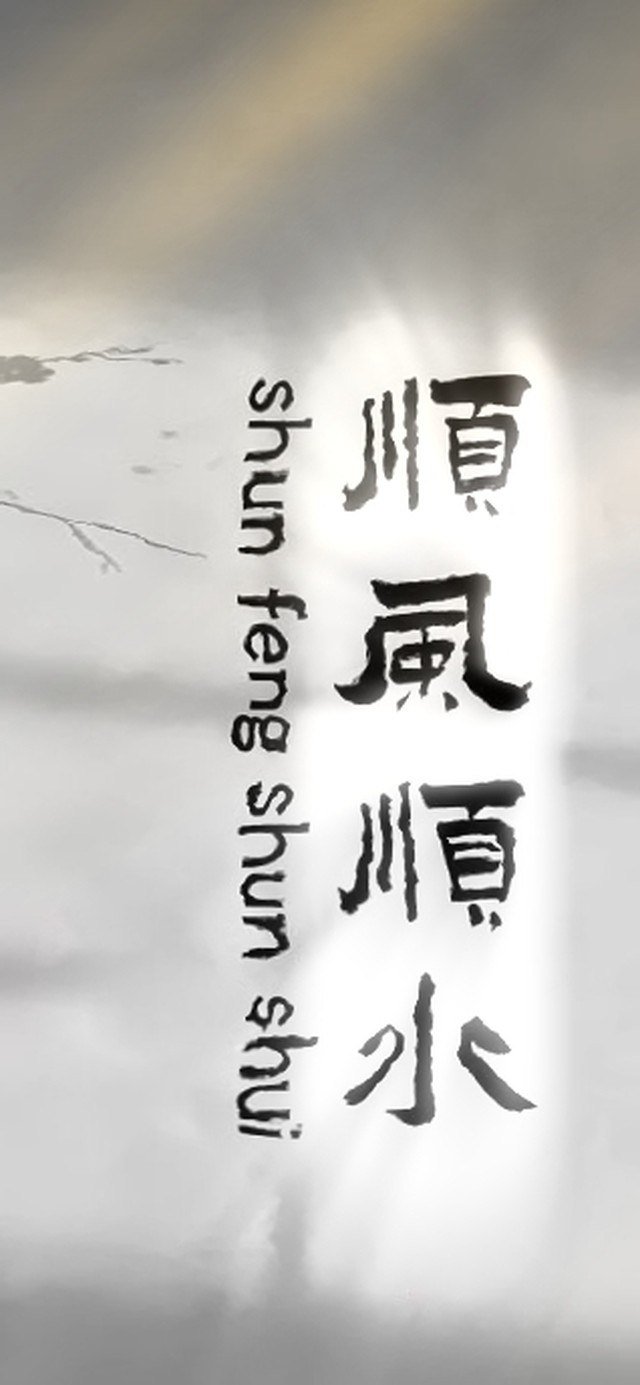 順風順水
shun feng shun shui